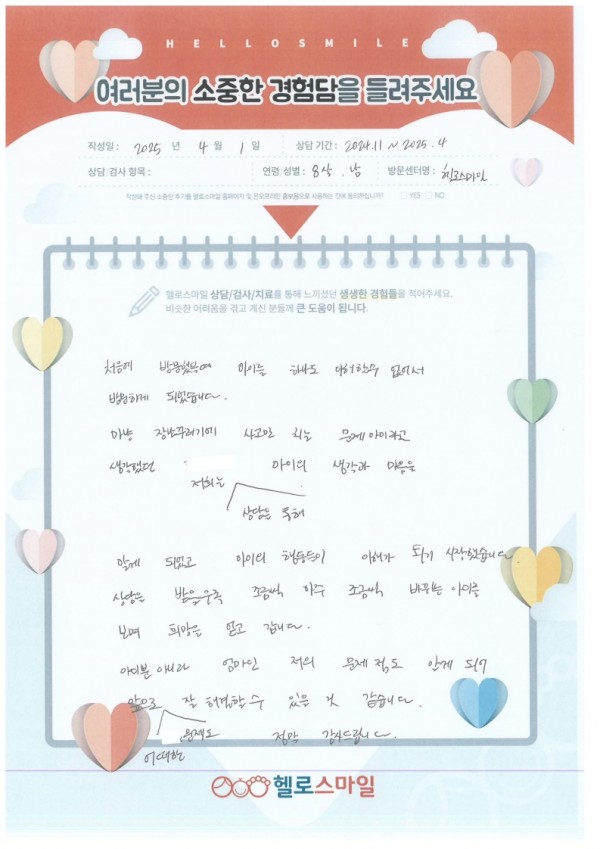 HELLOSMILE
여러분의 소중한 경험담을 들려주세요
작성일 : 2025 년 4 월 1 일 상담 기간 : 2024.11 ~ 2025.4
상담/검사 항목 : 연령/성별 : 8살 . 남 방문센터명 : 헬로스마일
작성해 주신 소중한 후기를 헬로스마일 홈페이지 및 온오프라인 홍보용으로 사용하는 것에 동의하십니까? YES NO
헬로스마일 상담/검사/치료를 통해 느끼셨던 생생한 경험들을 적어주세요.
비슷한 어려움을 겪고 계신 분들께 큰 도움이 됩니다.
처음에 방문했을때 아이를 하나도 이해할수 없어서
방문하게 되었습니다.
마냥 장난꾸러기에 사고만 치는 문제아이라고
생각했던 아이의 생각과 마음을
저희는
상담을 통해
알게 되었고 아이의 행동들이 이해가 되기 시작했습니다
상담을 받을수록 조금씩 하루 조금씩 바뀌는 아이를
보며 희망을 얻고 갑니다.
아이뿐 아니라 엄마인 저의 문제점도 알게 되어
앞으로 잘 해결할수 있을 것 같습니다.
어떠한 문제도 정말 감사드립니다.
헬로스마일